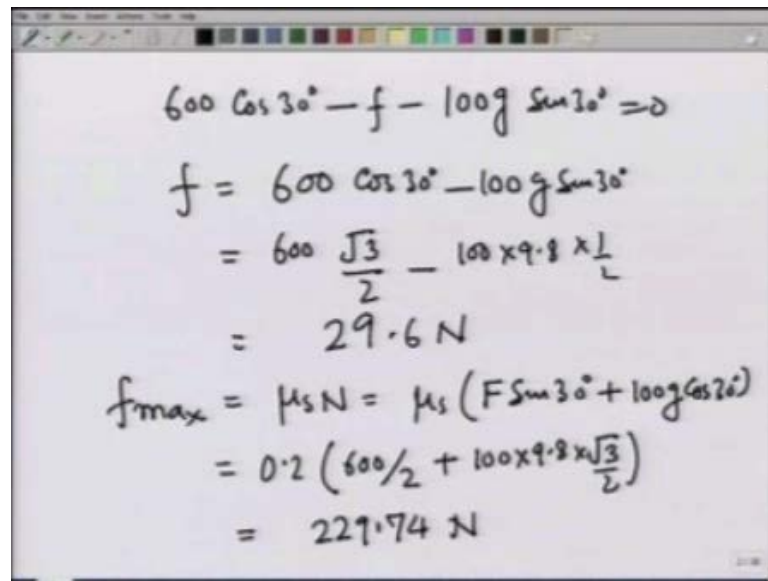 600 Cos 30° - f - 100g Sin 30° = 0
f = 600 Cos 30° - 100 g Sin 30°
= 600 √3/2 - 100 × 9.8 × 1/2
= 29.6 N
fmax = μsN = μs (F Sin 30° + 100g Cos 30°)
= 0.2 (600/2 + 100×9.8×√3/2)
= 229.74 N